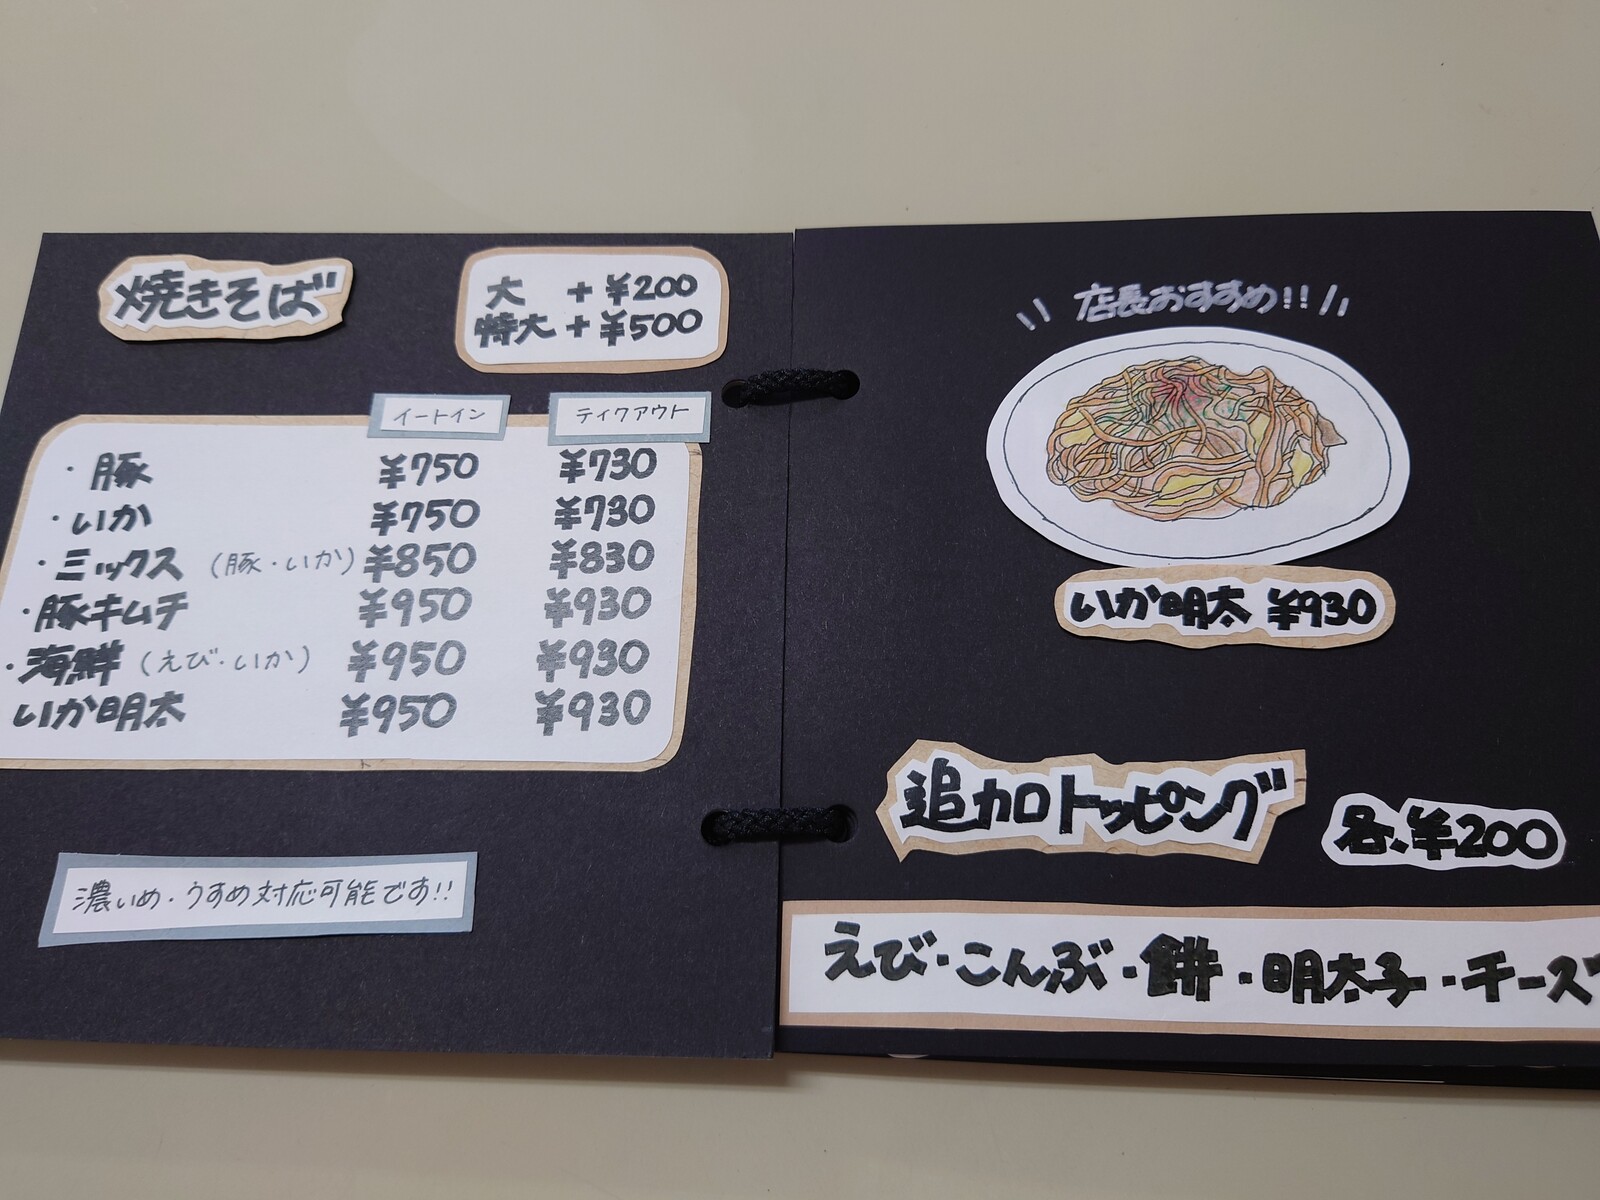 焼きそば
大 +¥200
特大+¥500
イートイン テイクアウト
・豚 ¥750 ¥730
・いか ¥750 ¥730
・ミックス (豚・いか) ¥850 ¥830
・豚キムチ ¥950 ¥930
・海鮮 (えび・いか) ¥950 ¥930
いか明太 ¥950 ¥930
濃いめ・うすめ対応可能です!!
\\ 店長おすすめ!! //
いか明太 ¥930
追加トッピング
各、¥200
えび・こんぶ・餅・明太子・チーズ